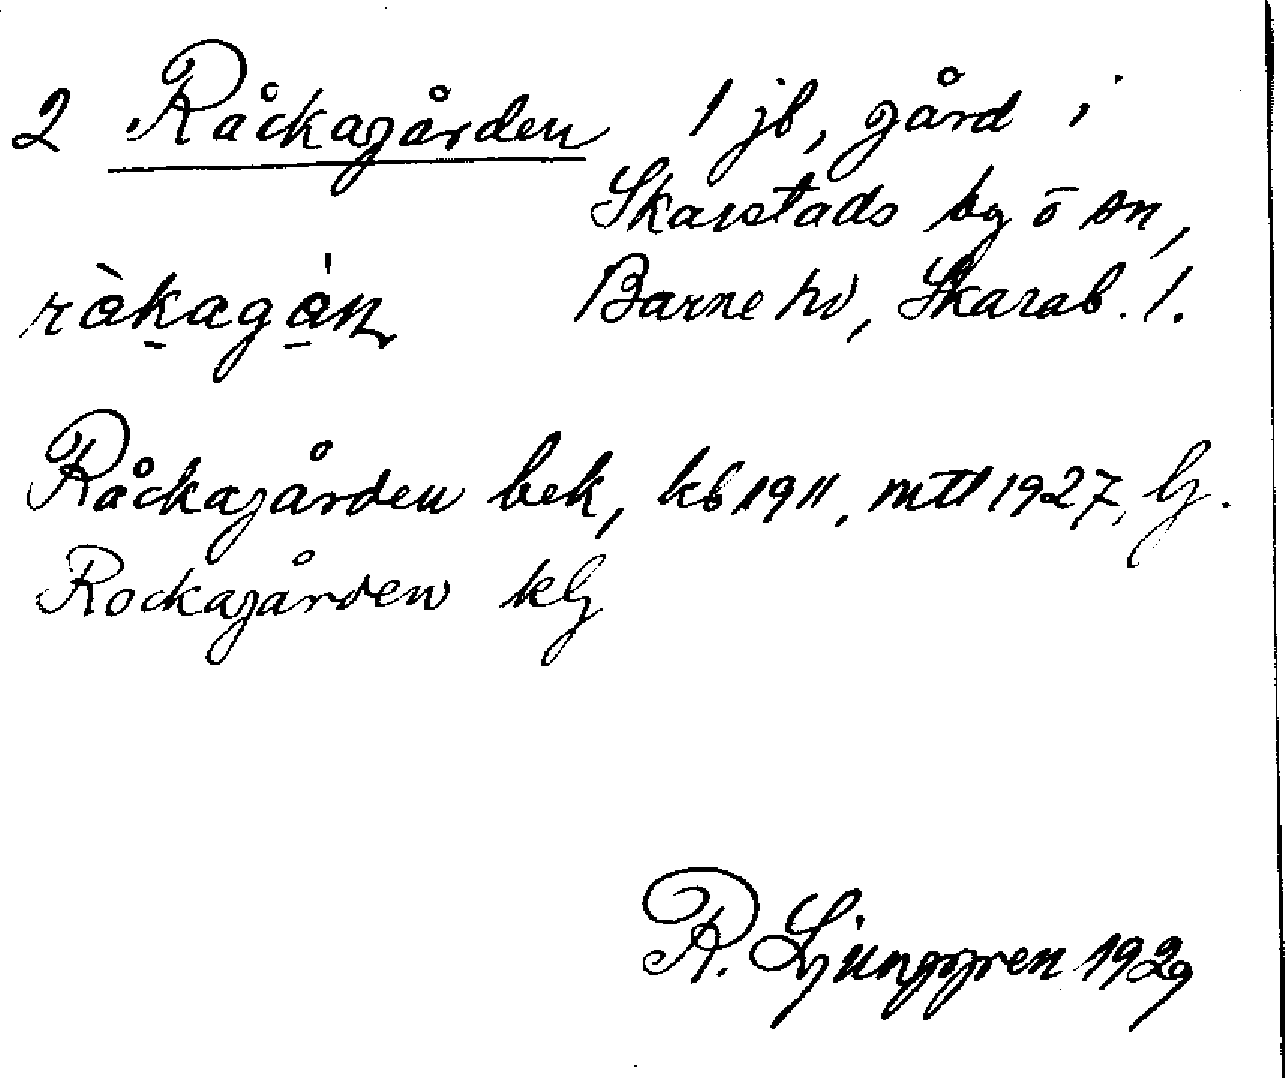 2 Råckagården 1 jb, gård i
Skarstads by o sn,
ràkagán Barne hd, Skarab. l.
Råckagården bek, kb 1911, mtl 1927, lj.
Rockagården klj
R. Ljunggren 1929